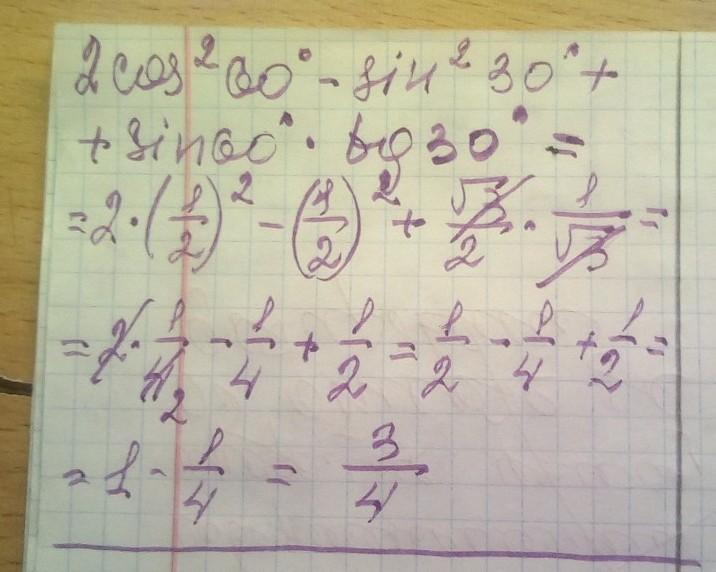 2cos²60° - sin²30° +
+ sin60° · tg30° =
= 2 · (1/2)² - (1/2)² + √3/2 · 1/√3 =
= 2 · 1/4 2 - 1/4 + 1/2 = 1/2 - 1/4 + 1/2 =
= 1 - 1/4 = 3/4